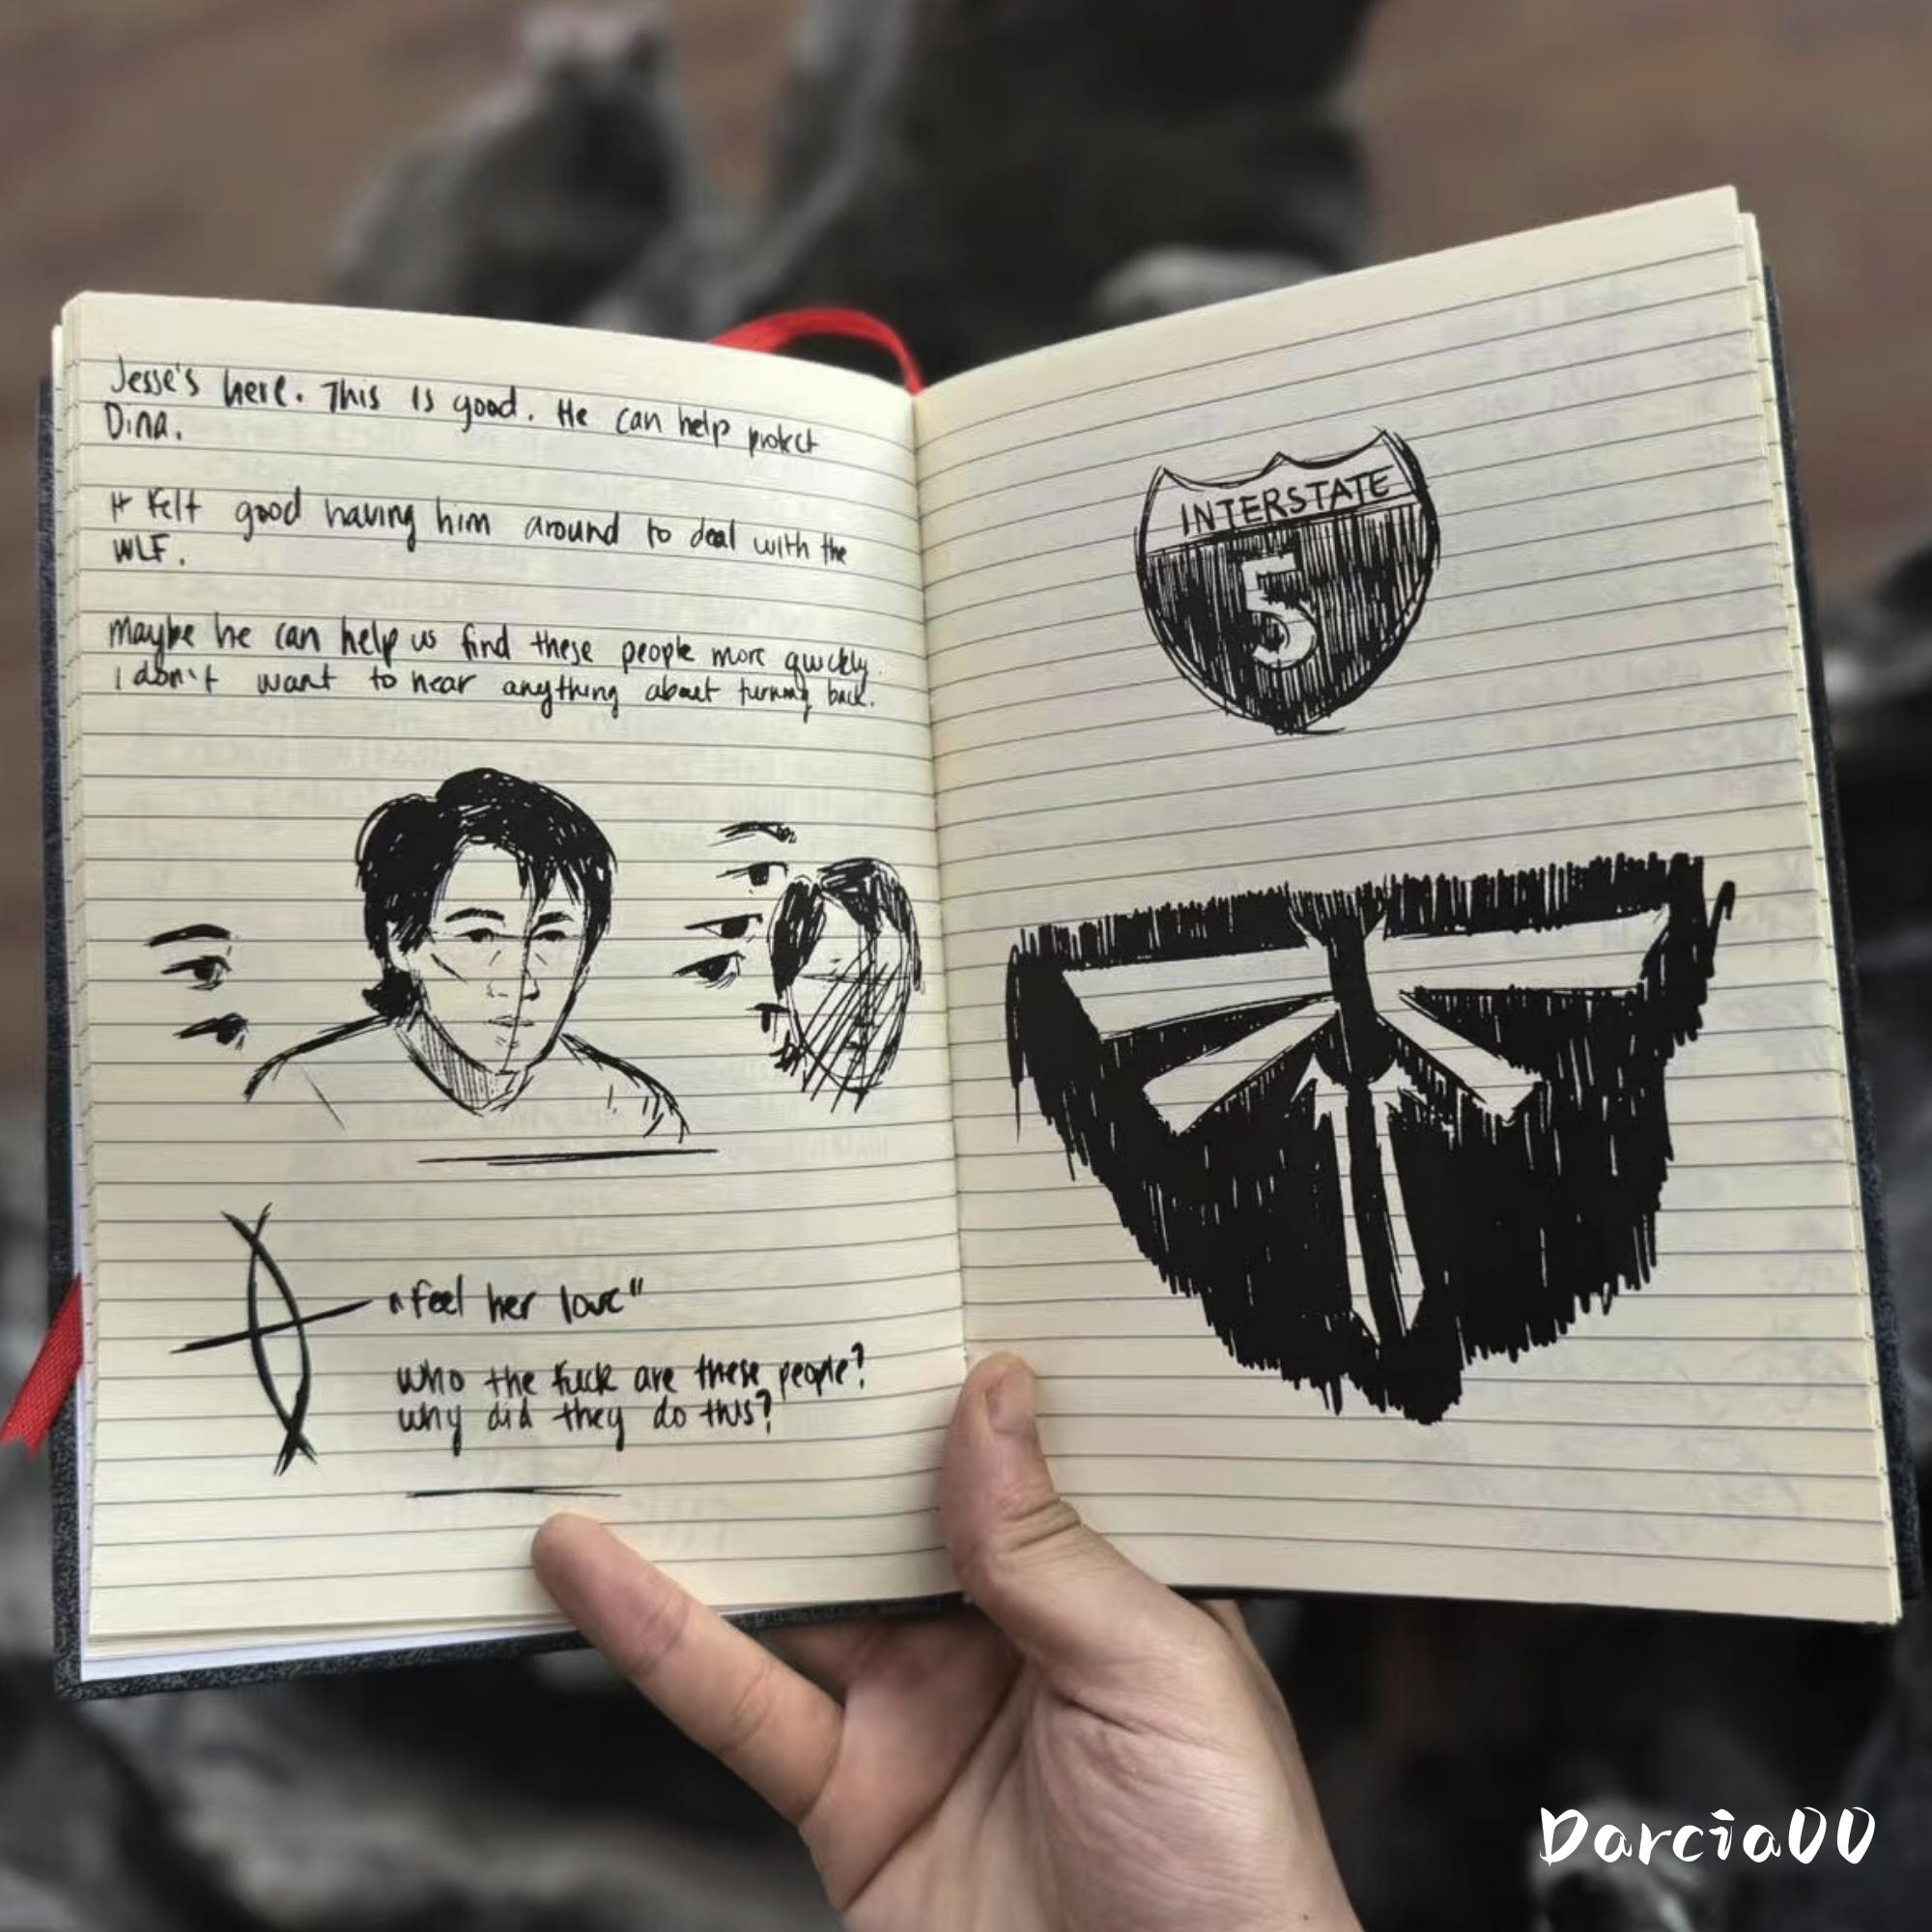 Jesse's here. This is good. He can help protect
Dina.
It felt good having him around to deal with the
WLF.
Maybe he can help us find these people more quickly.
I don't want to hear anything about turning back.
"feel her love"
who the fuck are these people?
why did they do this?
INTERSTATE
5
Darcia00